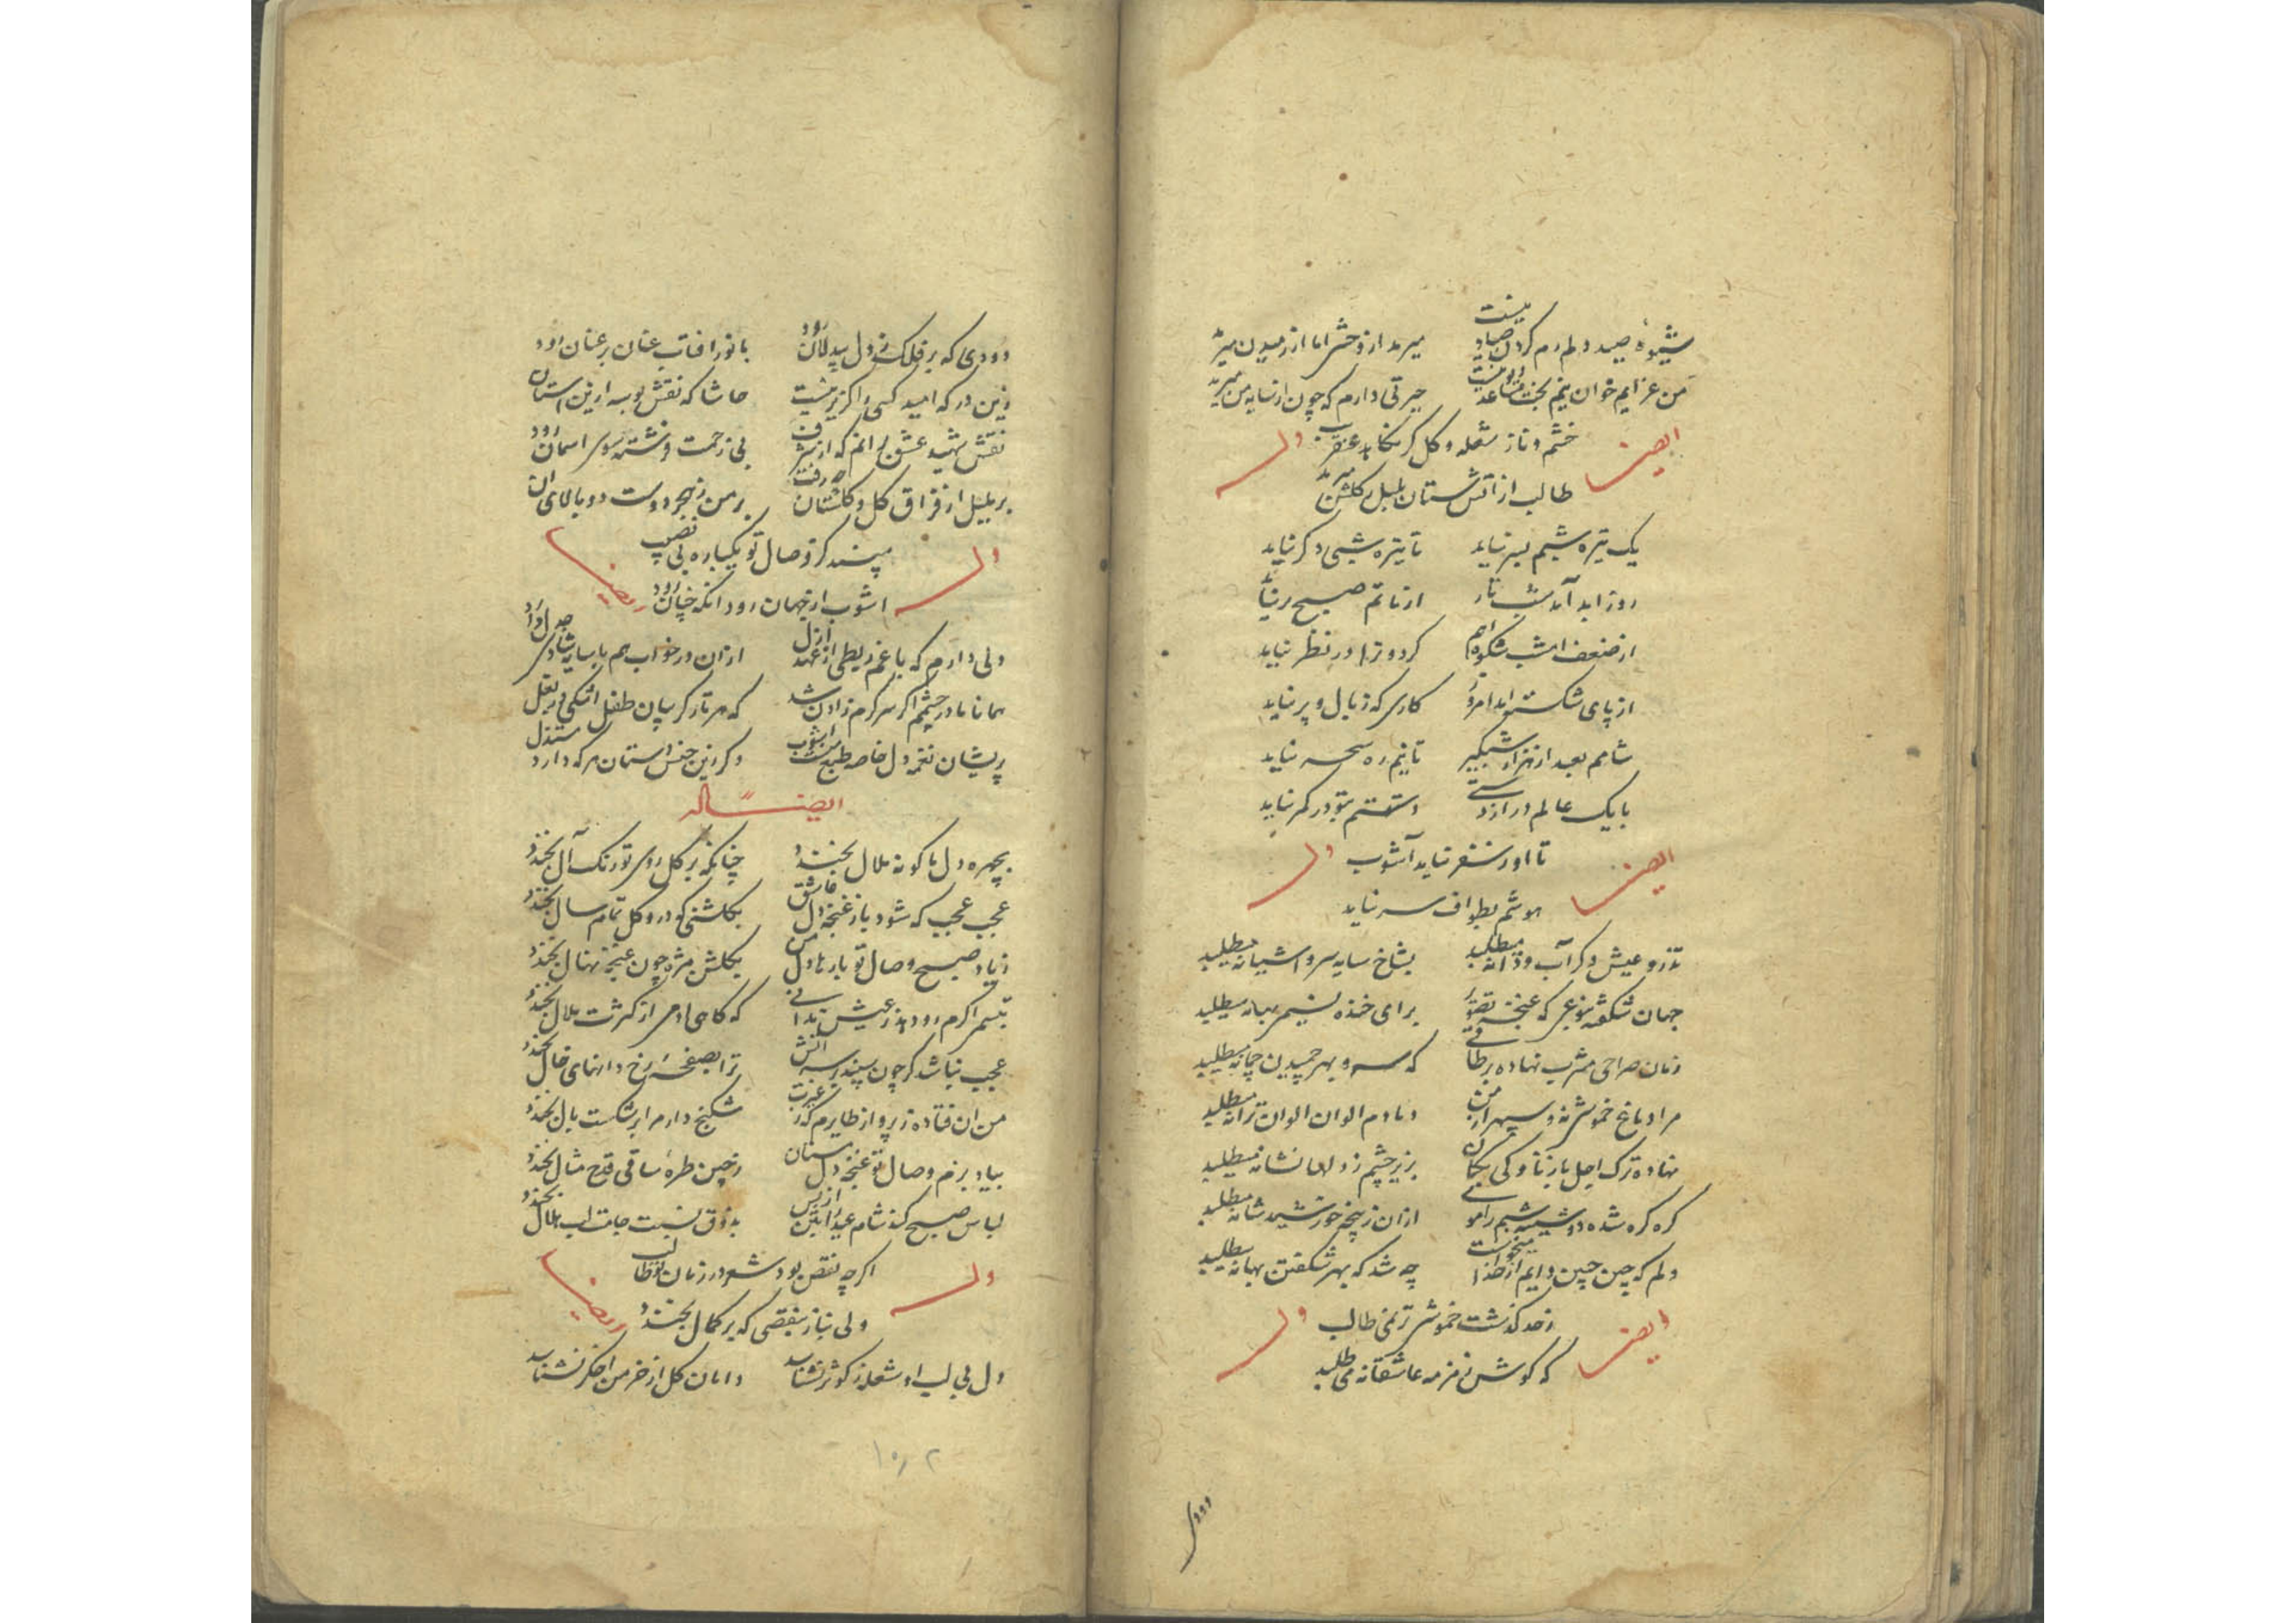 شیوهٔ صید دلم رم کردن صیاد نیست میرمد از وحشی اما از رمیدن میرمد
من عزایم خوان نیم بخت مساعد حیرتی دارم که چون از سایه من میرمد
ایضا خشم و ناز شعله و کل وله
طالب از آتش ستان بلبل ز کلشن میرمد
یک تیره شبم بسر نیاید تا تیره شبی دکر نیاید
روز ابد آمد شب تار از ماتم صبح بر نیاید
از ضعف امشب شکوهم کردون ترا در نظر نیاید
از پای شکسته اید امروز کاری که ز بال و پر نیاید
شامم بعد از هزار شبکیر تا نیم ره سحر نیاید
با یک عالم دراز دستی دستم بتو در کمر نیاید
ایضا تا او ز سفر نیاید آشوب وله
هوشم بطواف سر نیاید
تذرو عیش دکر آب و دانه میطلبد بشاخ سایه سرو آشیانه میطلبد
جهان شکفته که غنچه تصویر برای خنده نسیم بهانه میطلبد
زمان صراحی مشرب نهاده بر طاقی که سر و بهر چمیدن چمانه میطلبد
مرا دماغ خموشی نه و سپهر از من دمادم الوان الوان ترانه میطلبد
نهاده ترک اجل باز ناوکی بکمان بزیر چشم ز دلها نشانه میطلبد
کره کره شده دوشینه شبم را موی از آن ز پنجه خورشید شانه میطلبد
دلم که چین جبین دایم از خدا میخواست چه شد که بهر شکفتن بهانه میطلبد
ایضا ز حد کذشت خموشی ترنمی طالب وله
که کوش زمزمه عاشقانه می طلبد
دودی
دودی که بر فلک ز دل بیدلان رود با نور افتاب عنان بر عنان رود
زین در که امید کسی حاشا که نقش بوسه ازین استان رود
نقش شهید عشق بی زحمت فرشته سوی اسمان رود
بر بلبل از فراق کل و کلستان نرفت بر من ز هجر دوست دو بالای ان رود
وله مپسند کز وصال تو یکباره بی نصیب ایضا
اشوب از جهان رود انکه جهان رود
دلی دارم که با غم ربطی از عهد ازل دارد از ان در خواب هم با سایه شادی جدل دارد
همانا مادر چشمم اکر سرکرم زادن شد که هر تار کریبان طفل اشکی در بغل دارد
پریشان نغمه دل خاصه طبع اشوب
ایضا له
بچهره دل ما کونه ملال بخندد چنانکه بر کل روی تو رنک آل بخندد
عجب عجب که شود باز غنچه دل عاشق بکلشنی کو درو کل تمام سال بخندد
ز یاد صبح وصال تو بار ها دل من بکلشن مژه چون غنچه نهال بخندد
تبسم اکرم رود هد ز عیش که کاهی ادمی از کثرت ملال بخندد
عجب نباشد کر چون سپند بر سر آتش ترا بصفحه رخ دانهای خال بخندد
من ان فتاده ز پرواز طایرم که ز غیرت شکنج دام را بر شکست بال بخندد
بیاد بزم وصال تو غنچه دل مستان ز چین طره ساقی قدح مثال بخندد
لباس صبح کند شام عید را بذوق نسبت جامت لب هلال بخندد
وله اکر چه نقص بود شعر در زمان تو طالب ایضا
ولی بناز بنقصی که بر کمال بخندد
دل بی لب او شعله ز کوثر نشناسد دامان کل از خرمن اخکر نشناسد
۱۰۲